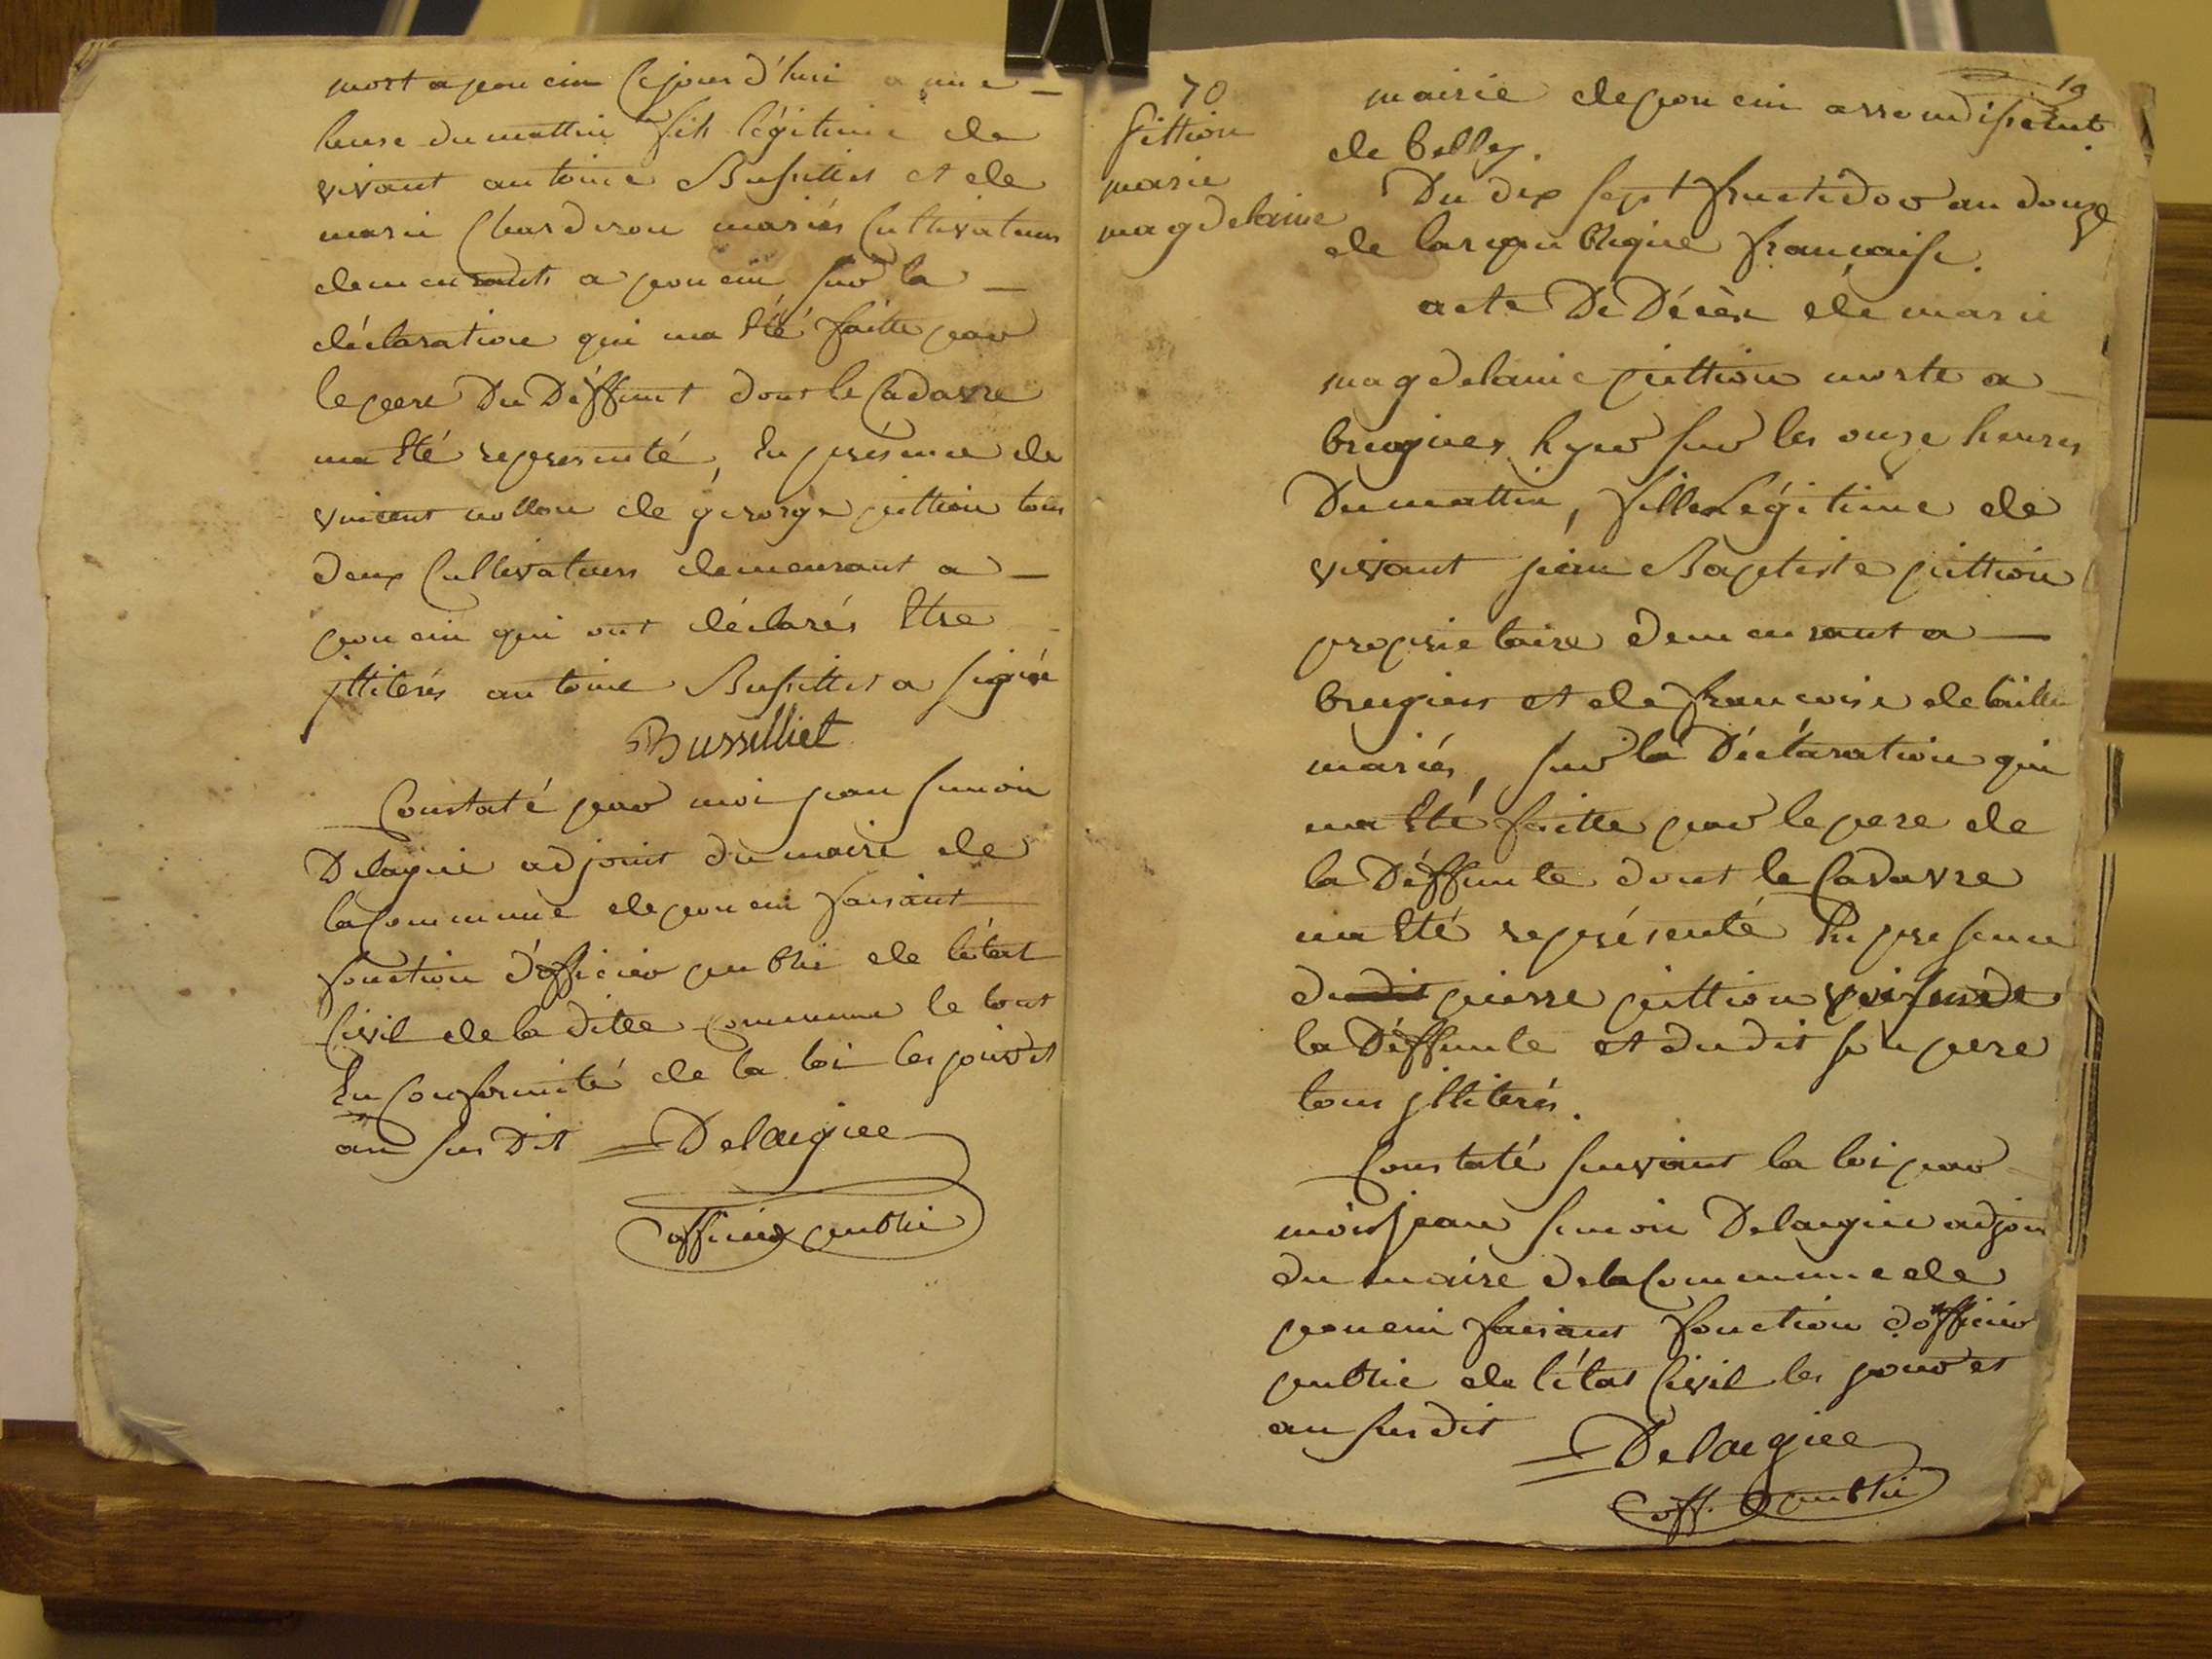 mort a poncin cejourd'hui a une
heure du mattin fils légitime de
vivant antoine Bussillet et de
marie Charderon mariés Cultivateurs
demeurants a poncin sur la
déclaration qui ma Eté faitte par
le pere Du Déffunt dont le Cadavre
ma Eté representé, En présence de
vincent nollou de george pittion tous
deux Cultivateurs demeurant a
poncin qui ont déclarés Etre
jlliterés antoine Bussillet a signé
Bussilliet
Constaté par moi jean simon
Delaigue adjoint du maire de
la Commune de poncin faisant
fonction d'officier public de létat
Civil de la ditte Commune le tout
En Conformité de la loi les jour et
an sus Dit Delaigue
officier public
70
Pittion
marie
magdelaine
19
mairie de poncin arrondissement
de belley.
Du dix sept fructidor an douze
de la republique francaise.
acte De Décès de marie
magdelaine pittion morte a
breignes hyer sur les onze heures
Du mattin, fille Légitime de
vivant jean Baptiste pittion
proprietaire demeurant a
breignes et de francoise
mariés, sur la Déclaration qui
ma Eté faitte par le pere de
la Déffunte dont le Cadavre
ma Eté représenté En presence
dudit pierre pittion
la Déffunte et dudit son pere
tous jlliterés.
Constaté suivant la loi par
moi jean simon Delaigue adjoin
du maire de la Commune de
poncin faisant fonction d'officier
public de l'état Civil les jour et
an sus dit Delaigue
off. public